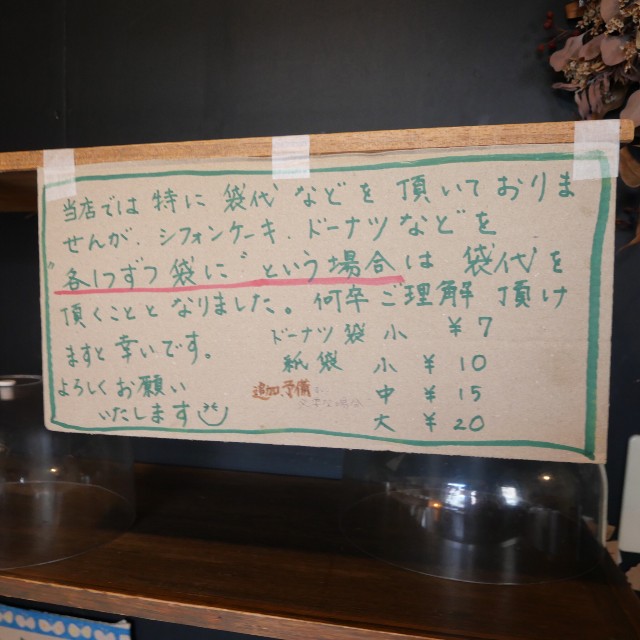 当店では特に袋代などを頂いておりま
せんが、シフォンケーキ、ドーナツなどを
"各1つずつ袋に"という場合は袋代を
頂くこととなりました。何卒ご理解頂け
ますと幸いです。
よろしくお願い
いたします
ドーナツ袋 小 ¥7
紙袋 小 ¥10
中 ¥15
大 ¥20
追加予備